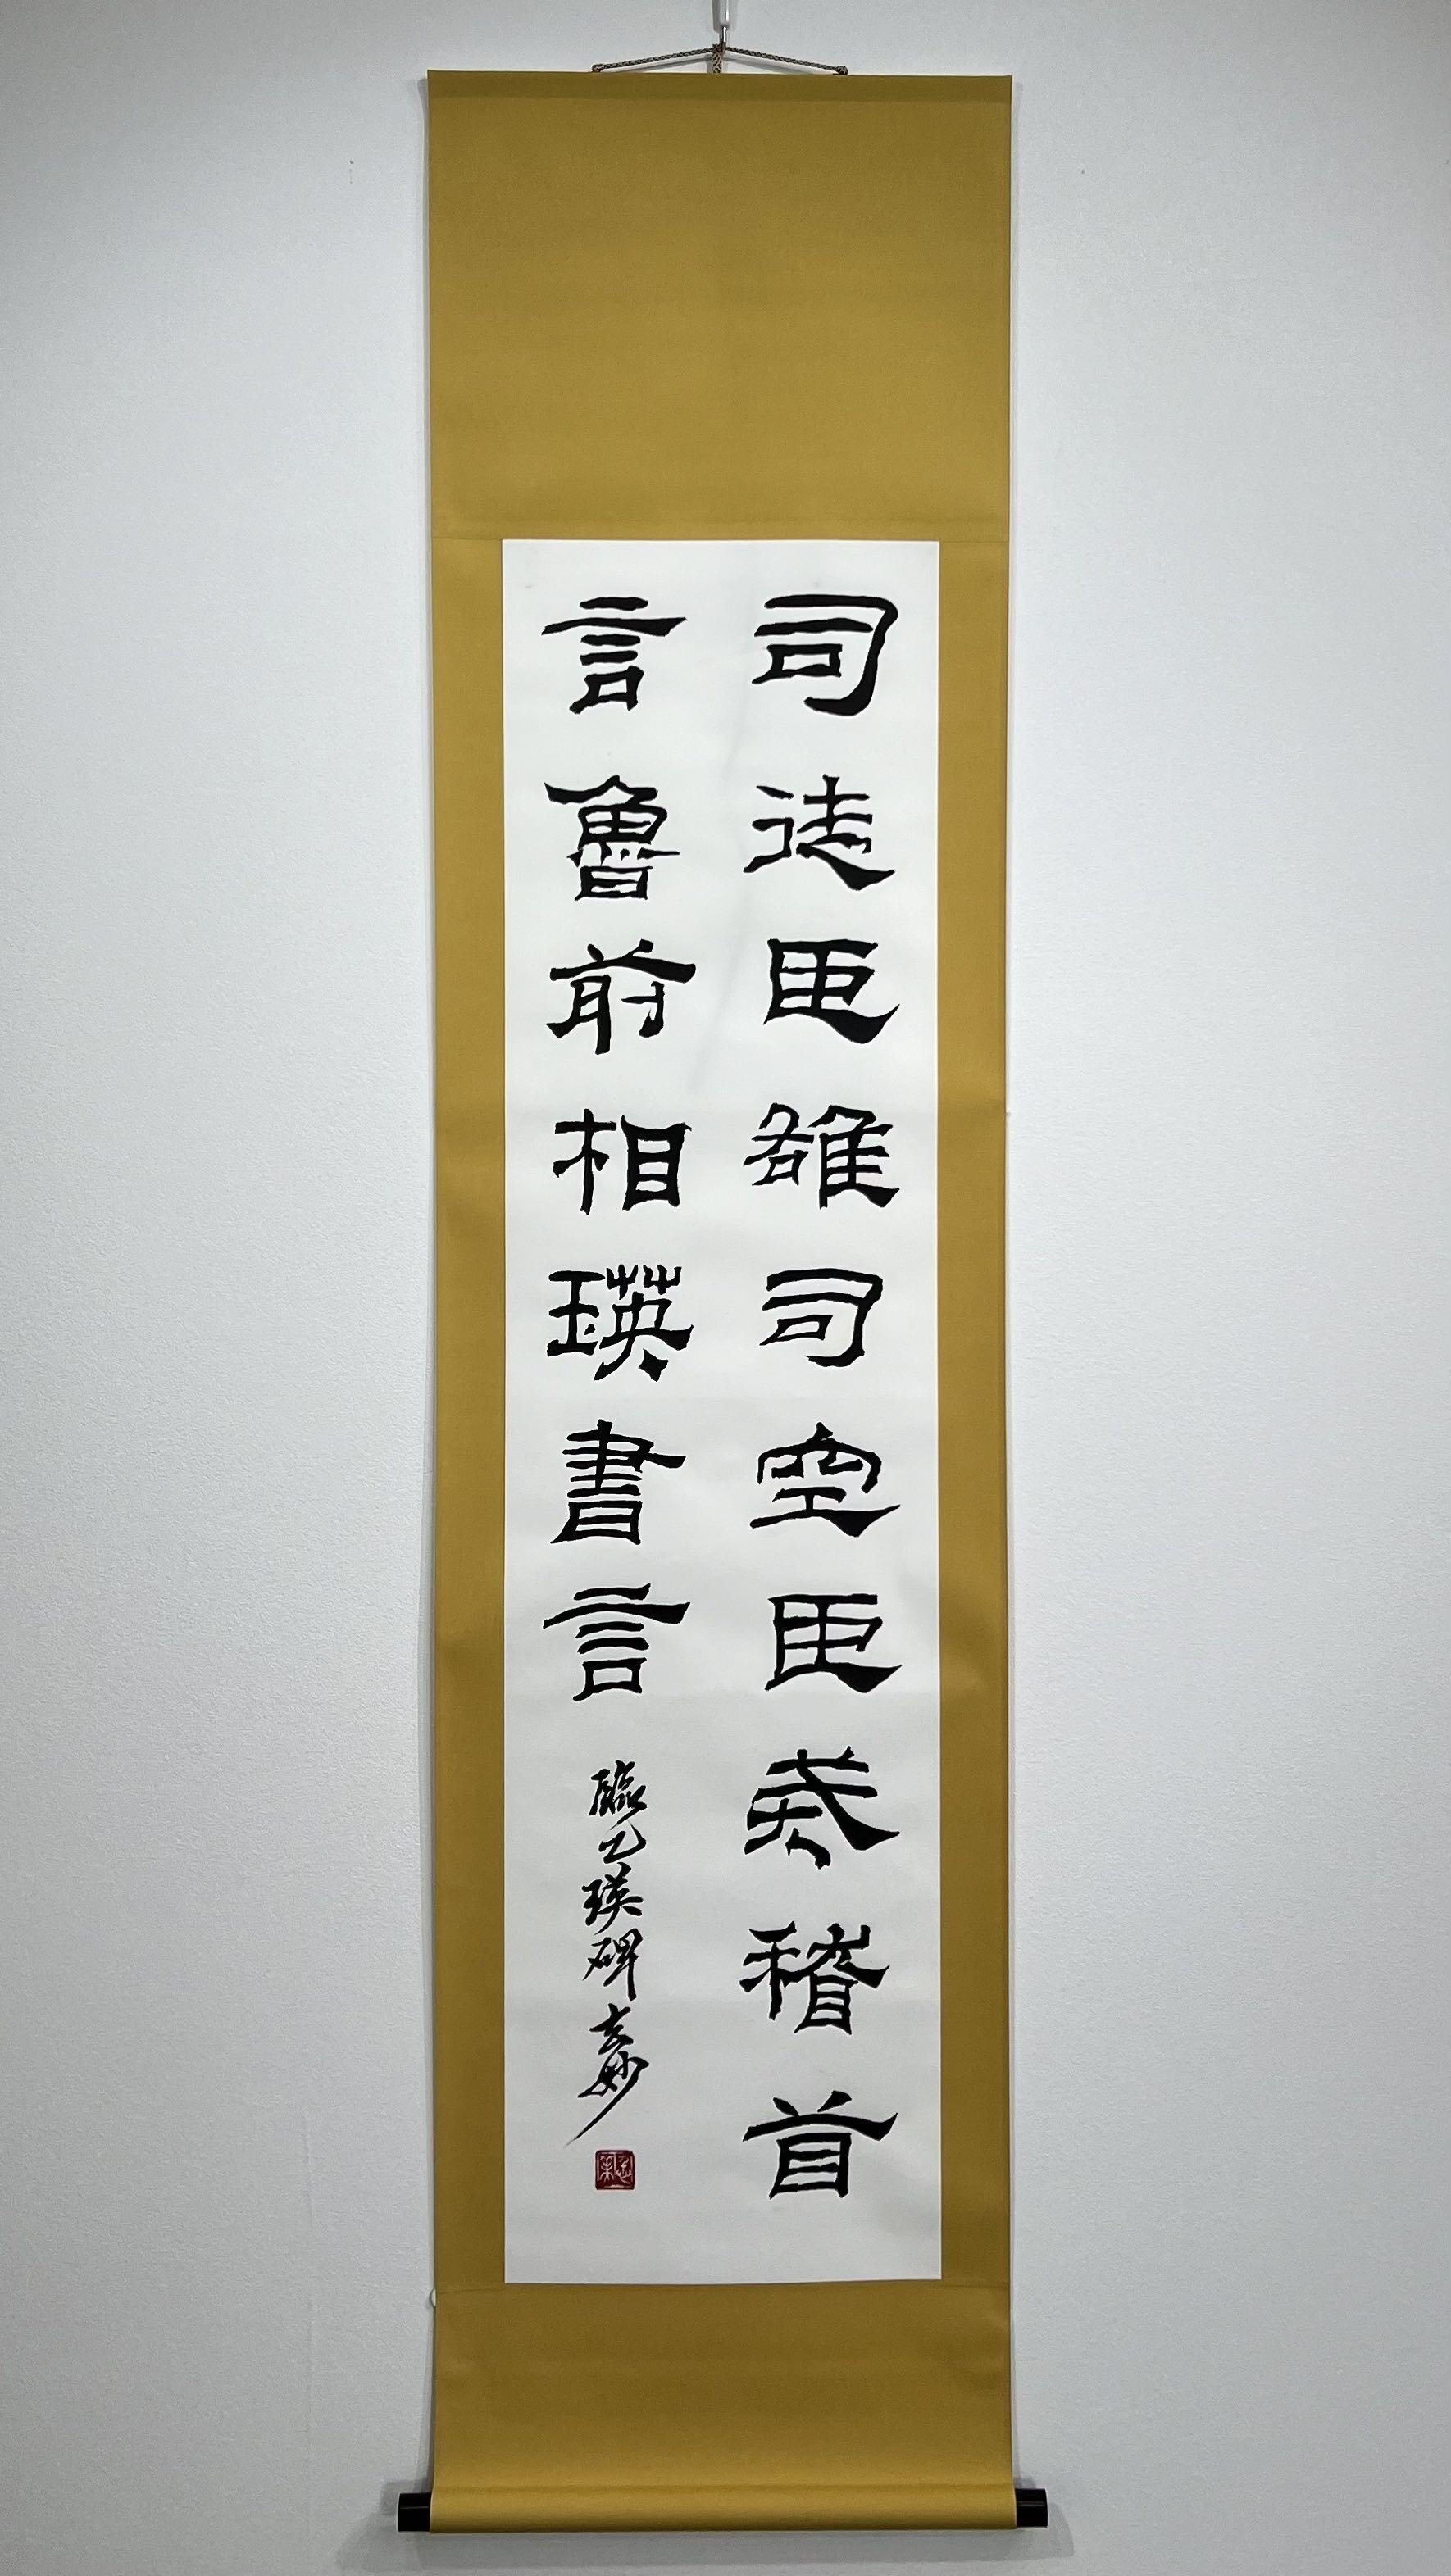 司徒臣雄司空臣戒稽首
言魯前相瑛書言
臨乙瑛碑玄妙